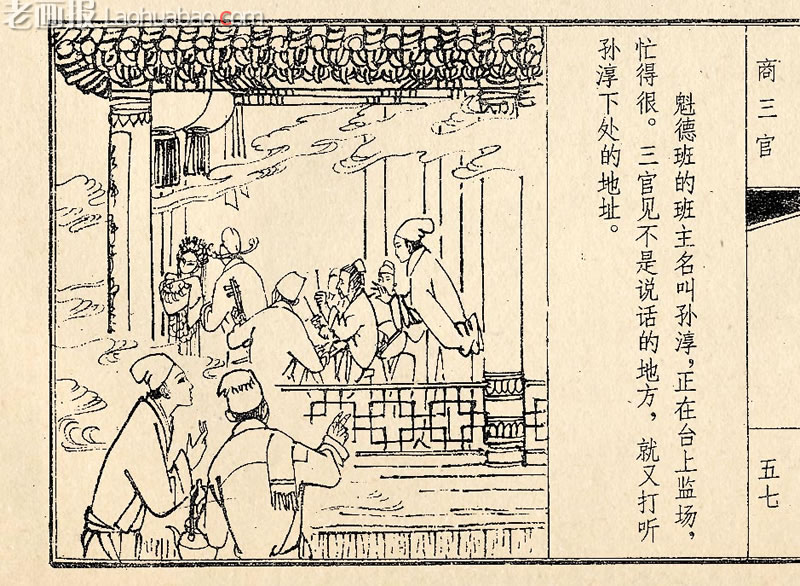 老画报 Laohuabao.com
商三官
魁德班的班主名叫孙淳，正在台上监场，
忙得很。三官见不是说话的地方，就又打听
孙淳下处的地址。
五七